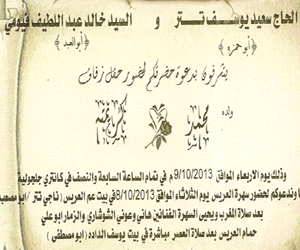 الحاج سعيد يوسف تتر و السيد خالد عبد اللطيف فيومي
﴿أبو حمزه﴾ ﴿أبو العبد﴾
يتشرفون بدعوة حضرتكم لحضور حفل زفاف
ولده
محمد كريمته
وذلك يوم الاربعاء الموافق 9/10/2013م في تمام الساعة السابعة والنصف في كانتري جلجولية
ا وندعوكم لحضور سهرة العريس يوم الثلاثاء الموافق 8/10/2013 في بيت عم العريس (ناجي تتر / ابو مصعب
بعد صلاة المغرب ويحيى السهرة الفنانين هاني وعوني الشوشاري والزمار ابو علي
حمام العريس بعد صلاة العصر مباشرة في بيت يوسف الداده ( ابو مصطفى )